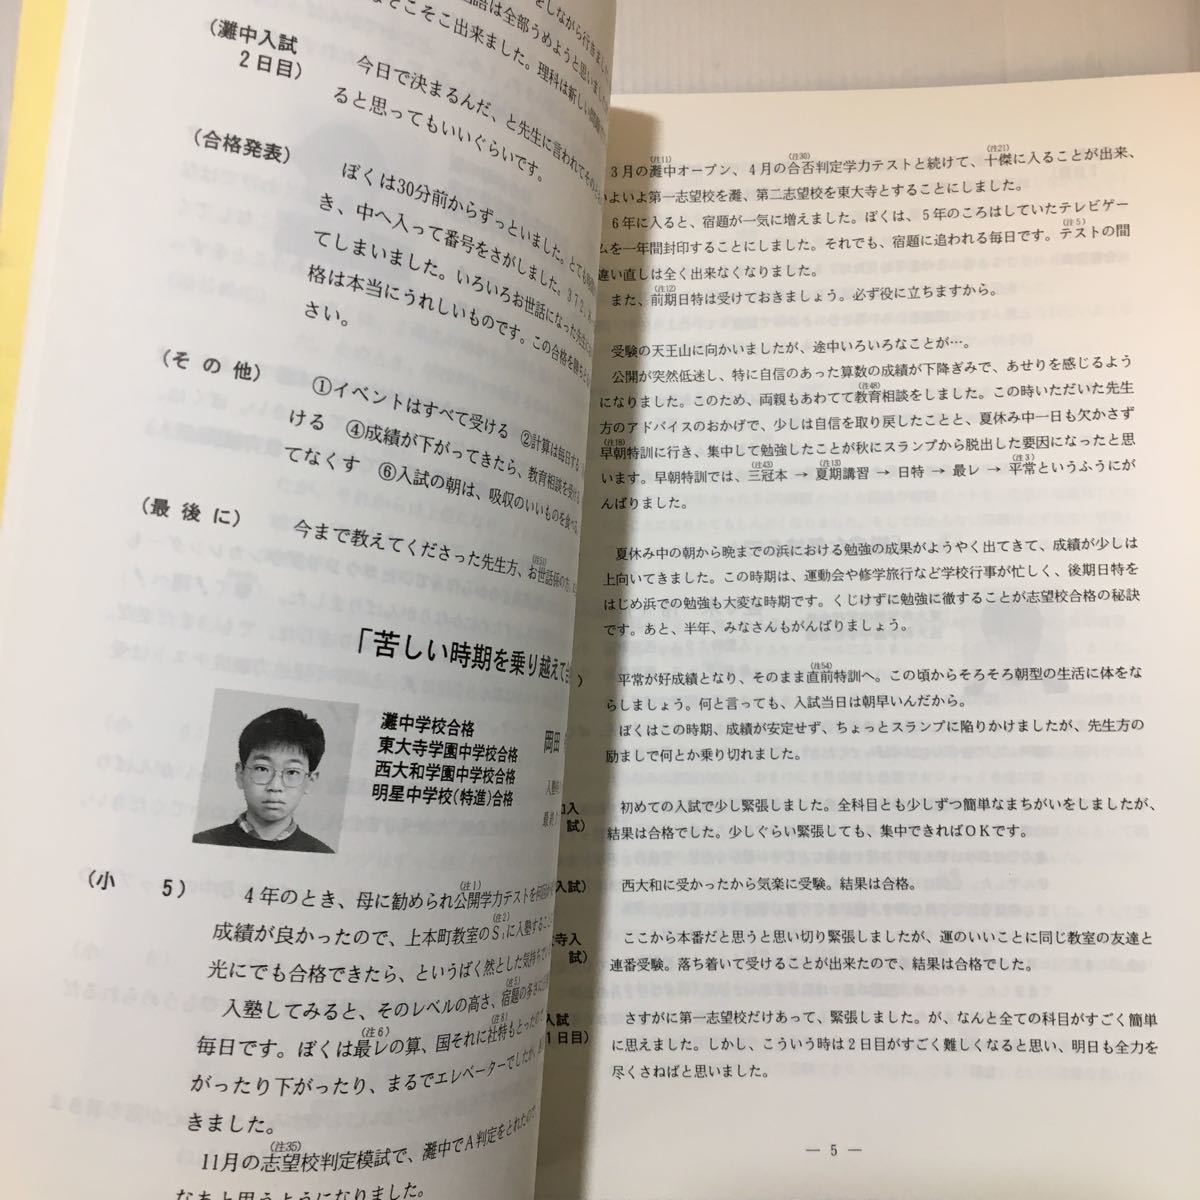 をしながら行きました
語は全部うめようと思いました
そこそこ出来ました。理科は新しい
(灘中入試
2日目)
今日で決まるんだ、と先生に言われてその
ると思ってもいいぐらいです。
(合格発表)
ぼくは30分前からずっといました。とても
き、中へ入って番号をさがしました。372、あっ
てしまいました。いろいろお世話になった先生に
格は本当にうれしいものです。この合格を勝ちと
さい。
(その他)
①イベントはすべて受ける ②計算は毎日する
ける ④成績が下がってきたら、教育相談を受ける
てなくす ⑥入試の朝は、吸収のいいものを食べる
(最後に)
(注51)
今まで教えてくださった先生方、お世話係の方、
「苦しい時期を乗り越えて
灘中学校合格
東大寺学園中学校合格
西大和学園中学校合格
明星中学校(特進)合格
岡田
入塾
最終
(小 5)
(注1)
4年のとき、母に勧められ公開学力テストを
(注2)
成績が良かったので、上本町教室のS₁に入塾すること
光にでも合格できたら、というばく然とした気持ちで
(注5)
入塾してみると、そのレベルの高さ、宿題の多さに
(注6) (注8)
毎日です。ぼくは最レの算、国それに社特もとったので
がったり下がったり、まるでエレベーターでしたが、
きました。
(注35)
11月の志望校判定模試で、灘中でA判定をとれたので
なあと思うようになりました。
(注11) (注30) (注21)
3月の灘中オープン、4月の合否判定学力テストと続けて、十傑に入ることが出来、
いよいよ第一志望校を灘、第二志望校を東大寺とすることにしました。
6年に入ると、宿題が一気に増えました。ぼくは、5年のころはしていたテレビゲー
(注5)
ムを一年間封印することにしました。それでも、宿題に追われる毎日です。テストの間
違い直しは全く出来なくなりました。
(注12)
また、前期日特は受けておきましょう。必ず役に立ちますから。
受験の天王山に向かいましたが、途中いろいろなことが…。
公開が突然低迷し、特に自信のあった算数の成績が下降ぎみで、あせりを感じるよう
(注48)
になりました。このため、両親もあわてて教育相談をしました。この時いただいた先生
方のアドバイスのおかげで、少しは自信を取り戻したことと、夏休み中一日も欠かさず
(注18)
早朝特訓に行き、集中して勉強したことが秋にスランプから脱出した要因になったと思
(注43) (注13) (注3)
います。早朝特訓では、三冠本 → 夏期講習 → 日特 → 最レ → 平常というふうにが
んばりました。
夏休み中の朝から晩までの浜における勉強の成果がようやく出てきて、成績が少しは
上向いてきました。この時期は、運動会や修学旅行など学校行事が忙しく、後期日特を
はじめ浜での勉強も大変な時期です。くじけずに勉強に徹することが志望校合格の秘訣
です。あと、半年、みなさんもがんばりましょう。
(注54)
平常が好成績となり、そのまま直前特訓へ。この頃からそろそろ朝型の生活に体をな
らしましょう。何と言っても、入試当日は朝早いんだから。
ぼくはこの時期、成績が安定せず、ちょっとスランプに陥りかけましたが、先生方の
励ましで何とか乗り切れました。
入
試)
初めての入試で少し緊張しました。全科目とも少しずつ簡単なまちがいをしましたが、
結果は合格でした。少しぐらい緊張しても、集中できればOKです。
入試)
西大和に受かったから気楽に受験。結果は合格。
寺入
試)
ここから本番だと思うと思い切り緊張しましたが、運のいいことに同じ教室の友達と
連番受験。落ち着いて受けることが出来たので、結果は合格でした。
入試
1日目)
さすがに第一志望校だけあって、緊張しました。が、なんと全ての科目がすごく簡単
に思えました。しかし、こういう時は2日目がすごく難しくなると思い、明日も全力を
尽くさねばと思いました。
― 5 ―